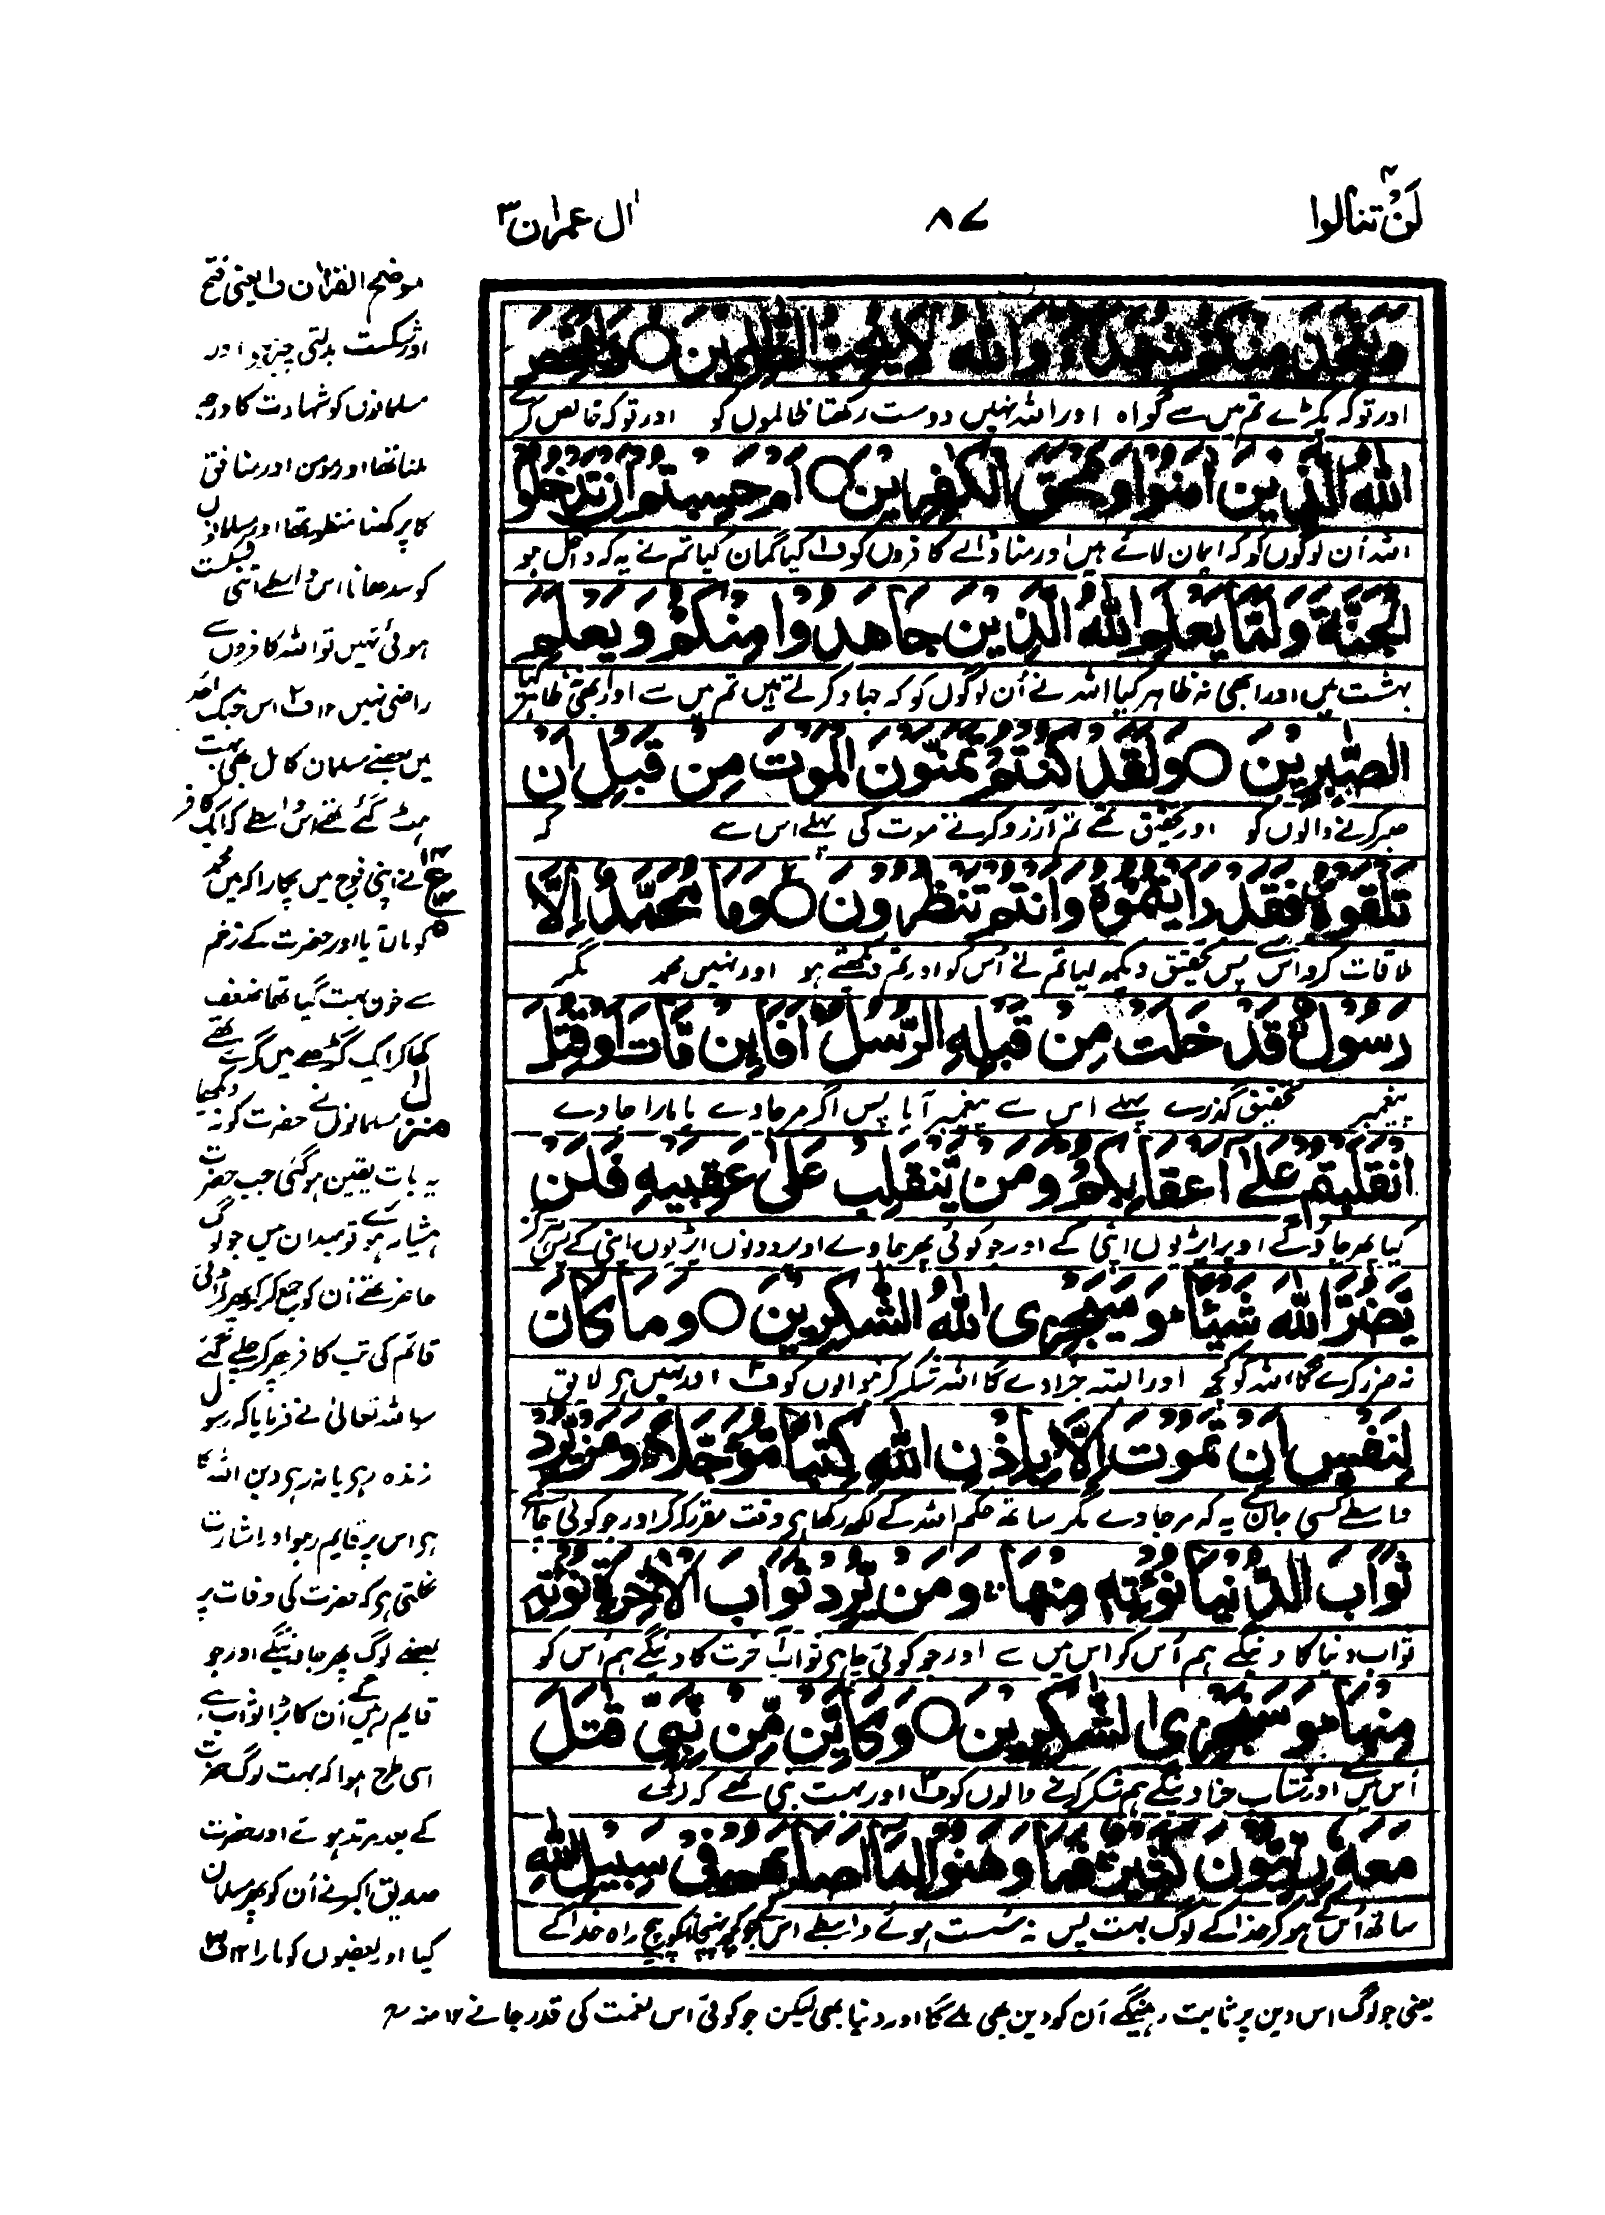 لَنْ تنالوا ۴
۸۷
اٰل عمرٰن ۳
وَيَتَّخِذَ مِنْكُمْ شُهَدَآءَ وَاللّٰهُ لَا يُحِبُّ الظّٰلِمِيْنَ ○ وَلِيُمَحِّصَ
اور توکہ پکڑے تم میں سے گواہ اور اللہ نہیں دوست رکھتا ظالموں کو اور توکہ خالص کرے
اللّٰهُ الَّذِيْنَ اٰمَنُوْا وَيَمْحَقَ الْكٰفِرِيْنَ ○ اَمْ حَسِبْتُمْ اَنْ تَدْخُلُوا
اللہ اُن لوگوں کو کہ ایمان لائے ہیں اور مٹا ڈالے کافروں کو ف۱ کیا گمان کیا تم نے یہ کہ داخل ہو
الْجَنَّةَ وَلَمَّا يَعْلَمِ اللّٰهُ الَّذِيْنَ جَاهَدُوْا مِنْكُمْ وَيَعْلَمَ
بہشت میں اور ابھی نہ ظاہر کیا اللہ نے اُن لوگوں کو کہ جہاد کرتے ہیں تم میں سے اور ابھی ظاہر کیا
الصّٰبِرِيْنَ ○ وَلَقَدْ كُنْتُمْ تَمَنَّوْنَ الْمَوْتَ مِنْ قَبْلِ اَنْ
صبر کرنے والوں کو اور تحقیق تھے تم آرزو کرتے موت کی پہلے اس سے کہ
تَلْقَوْهُ فَقَدْ رَاَيْتُمُوْهُ وَاَنْتُمْ تَنْظُرُوْنَ ○ وَمَا مُحَمَّدٌ اِلَّا
ملاقات کرو اس سے پس تحقیق دیکھ لیا تم نے اُس کو اور تم دیکھتے ہو اور نہیں محمد مگر
رَسُوْلٌ قَدْ خَلَتْ مِنْ قَبْلِهِ الرُّسُلُ اَفَا۟ئِنْ مَّاتَ اَوْ قُتِلَ
پیغمبر تحقیق گذرے پہلے اس سے پیغمبر آیا پس اگر مرجاوے یا مارا جاوے
انْقَلَبْتُمْ عَلٰٓى اَعْقَابِكُمْ وَمَنْ يَّنْقَلِبْ عَلٰى عَقِبَيْهِ فَلَنْ
کیا پھر جاؤگے اوپر ایڑیوں اپنی کے اور جو کوئی پھر جاوے اوپر دونوں ایڑیوں اپنی کے پس ہرگز
يَّضُرَّ اللّٰهَ شَيْـًٔا وَسَيَجْزِى اللّٰهُ الشّٰكِرِيْنَ ○ وَمَا كَانَ
نہ ضرر کرے گا اللہ کو کچھ اور البتہ جزا دے گا اللہ شکر کرنیوالوں کو ف۲ اور نہیں ہی لایق
لِنَفْسٍ اَنْ تَمُوْتَ اِلَّا بِاِذْنِ اللّٰهِ كِتٰبًا مُّؤَجَّلًا وَمَنْ يُّرِدْ
واسطے کسی جان کے یہ کہ مرجاوے مگر ساتھ حکم اللہ کے لکھ رکھا ہی وقت مقرر کر کر اور جو کوئی چاہے
ثَوَابَ الدُّنْيَا نُؤْتِهٖ مِنْهَا وَمَنْ يُّرِدْ ثَوَابَ الْاٰخِرَةِ نُؤْتِهٖ
ثواب دنیا کا دینگے ہم اُس کو اس میں سے اور جو کوئی چاہی ثواب آخرت کا دینگے ہم اُس کو
مِنْهَا وَسَنَجْزِى الشّٰكِرِيْنَ ○ وَكَاَيِّنْ مِّنْ نَّبِيٍّ قٰتَلَ
اُس میں سے اور شتاب جزا دینگے ہم شکر کرنے والوں کو ف۳ اور بہت نبی تھے کہ لڑے
مَعَهٗ رِبِّيُّوْنَ كَثِيْرٌ فَمَا وَهَنُوْا لِمَآ اَصَابَهُمْ فِيْ سَبِيْلِ اللّٰهِ
ساتھ اُس کے ہو کر خدا کے لوگ بہت پس نہ سُست ہوئے واسطے اس کے جو کچھ پہنچا انکو بیچ راہ خدا کے
موضح القرآن ف۱ یعنی فتح
اور شکست بدلتی چیز ہے اور
مسلمانوں کو شہادت کا درجہ
ملنا تھا اور مومن اور منافق
کا پرکھنا منظور تھا اور مسلمانوں
کو سدھانا اس واسطے اتنی شکست
ہوئی نہیں تو اللہ کافروں سے
راضی نہیں ۱۲ ف۲ اس جنگ اُحد
میں بعضے مسلمان کامل بھی بہت
ہٹ گئے تھے اس واسطے کہ ایک کافر
نے اپنی فوج میں پکارا کہ میں محمد
کو مار آیا اور حضرت کے زخم
سے خون بہت گیا تھا ضعف
کھا کر ایک گڑھے میں گرے تھے
مسلمانوں نے حضرت کو نہ دیکھا
منزل
یہ بات یقین ہوگئی جب حضرت
ہشیار ہوئے تو میدان میں جو لوگ
حاضر تھے اُن کو جمع کر کر پھر لڑائی
قائم کی تب کافر پھر کر چلے گئے
سو اللہ تعالیٰ نے فرمایا کہ رسول
زندہ رہی یا نہ رہی دین اللہ کا
ہی اس پر قایم رہو اور اشارت
نکلتی ہی کہ حضرت کی وفات پر
بعضے لوگ پھر جاوینگے اور جو
قایم رہیں گے اُن کا بڑا ثواب ہے
اسی طرح ہوا کہ بہت لوگ حضرت
کے بعد مرتد ہوئے اور حضرت
صدیق اکبر نے اُن کو پھر مسلمان
کیا اور بعضوں کو مارا ۱۲ ف۳
یعنی جو لوگ اس دین پر ثابت رہینگے اُن کو دین بھی ملے گا اور دنیا بھی لیکن جو کوئی اس نعمت کی قدر جانے ۱۲ منہ